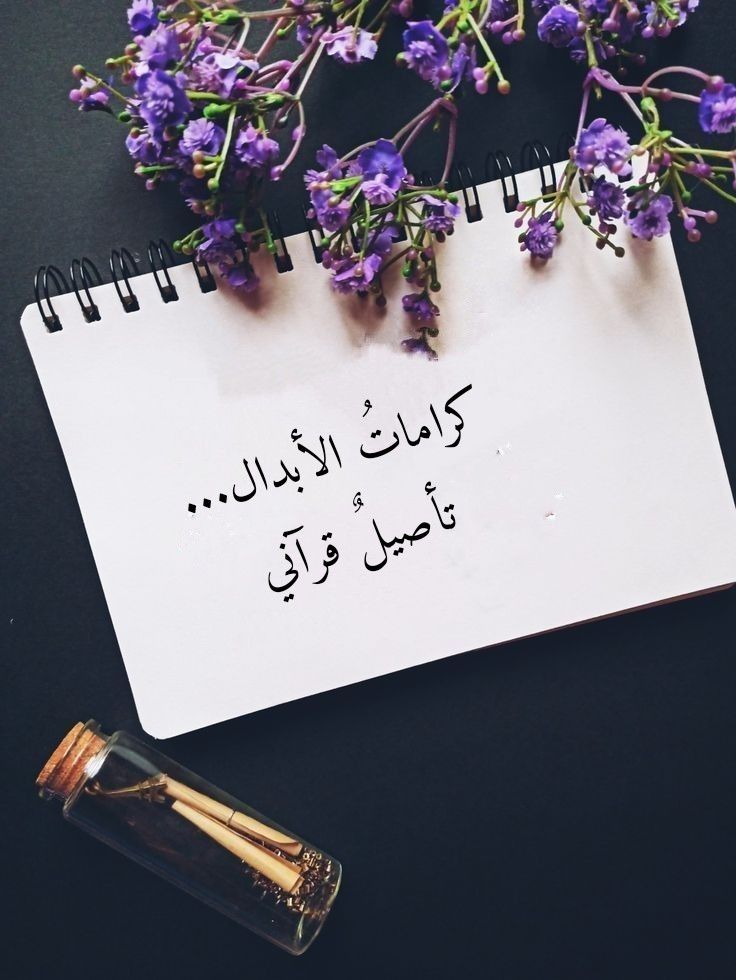 كراماتُ الأبدال...
تأصيلٌ قرآني